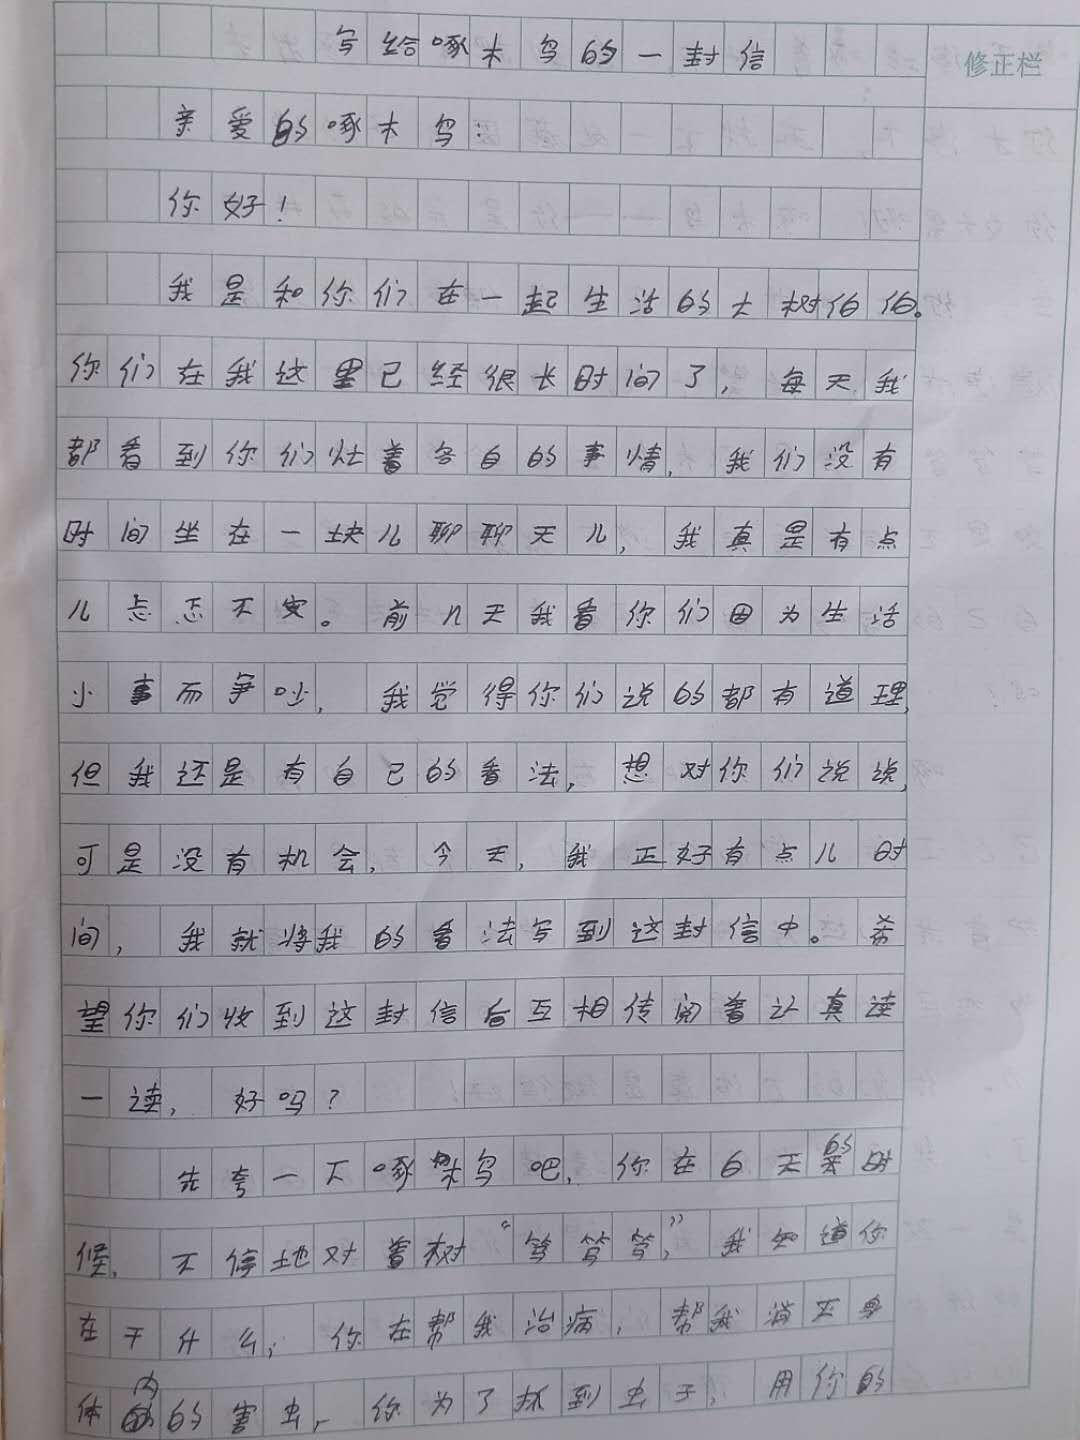 写给啄木鸟的一封信
修正栏
亲爱的啄木鸟:
你好!
我是和你们在一起生活的大树伯伯。
你们在我这里已经很长时间了,每天我
都看到你们忙着各自的事情,我们没有
时间坐在一块儿聊聊天儿,我真是有点
儿忐忑不安。前几天我看你们因为生活
小事而争吵,我觉得你们说的都有道理,
但我还是有自己的看法,想对你们说说,
可是没有机会,今天,我正好有点儿时
间,我就将我的看法写到这封信中。希
望你们收到这封信后互相传阅着认真读
一读,好吗?
先夸一下啄木鸟吧,你在白天的时
候,不停地对着树“笃笃笃”,我知道你
在干什么,你在帮我治病,帮我消灭身
体内的害虫,你为了抓到虫子,用你的